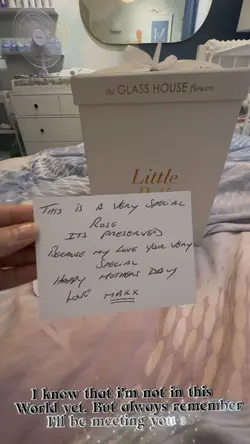 the GLASS HOUSE flowers
Little
THIS IS A VERY SPECIAL
ROSE
ITS PRESERVED
BECAUSE MY LOVE YOUR VERY
SPECIAL
HAPPY MOTHERS DAY
LOVE MAXX
I know that i'm not in this
World yet. But always remember
I'll be meeting you